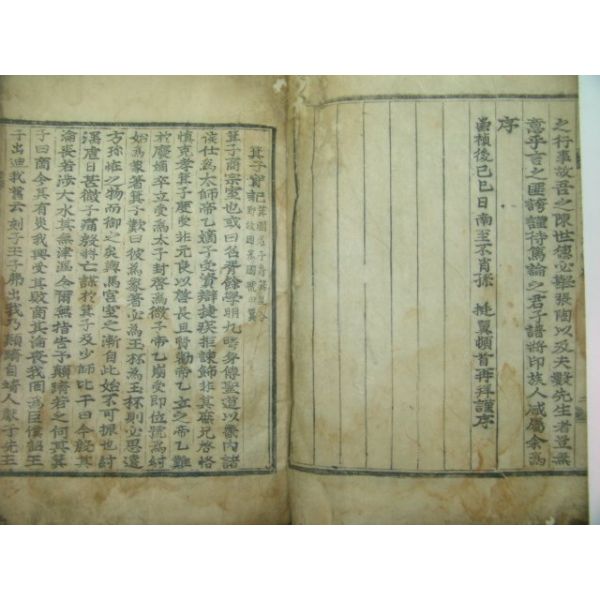 之行事故吾之陳世德必擬張陶以及夫散先生者豈無
意乎言之匪誇謹待篤論之君子譜將印族人咸屬余為
序
崇禎後己巳日南至不肖孫 挻翼頓首再拜謹序
箕子實記
箕子商宗室也或曰名胥餘學明九疇身傳聖道以畿內諸
侯仕為太師帝乙嫡子受資辯捷疾拒諫飾非其庶兄啓恪
慎克孝箕子慶受非元良以啓長且賢勸帝乙立之帝乙難
於廢嫡卒立受為太子封啓為微子帝乙崩受即位號為紂
始為象著箕子歎曰彼為象著必為玉杯為玉杯則必思遠
方珍怪之物而御之矣輿馬宮室之漸自此始不可振也紂
淫虐日甚微子痛殷將亡謀於箕子及少師比干曰今殷其
淪喪若涉大水其無津涯今爾無指告予顚隮若之何其箕
子曰商今其有災我興受其敗商其淪喪我罔為臣僕詔王
子出迪我舊云刻子王子弗出我乃顚隮自靖人獻于先王